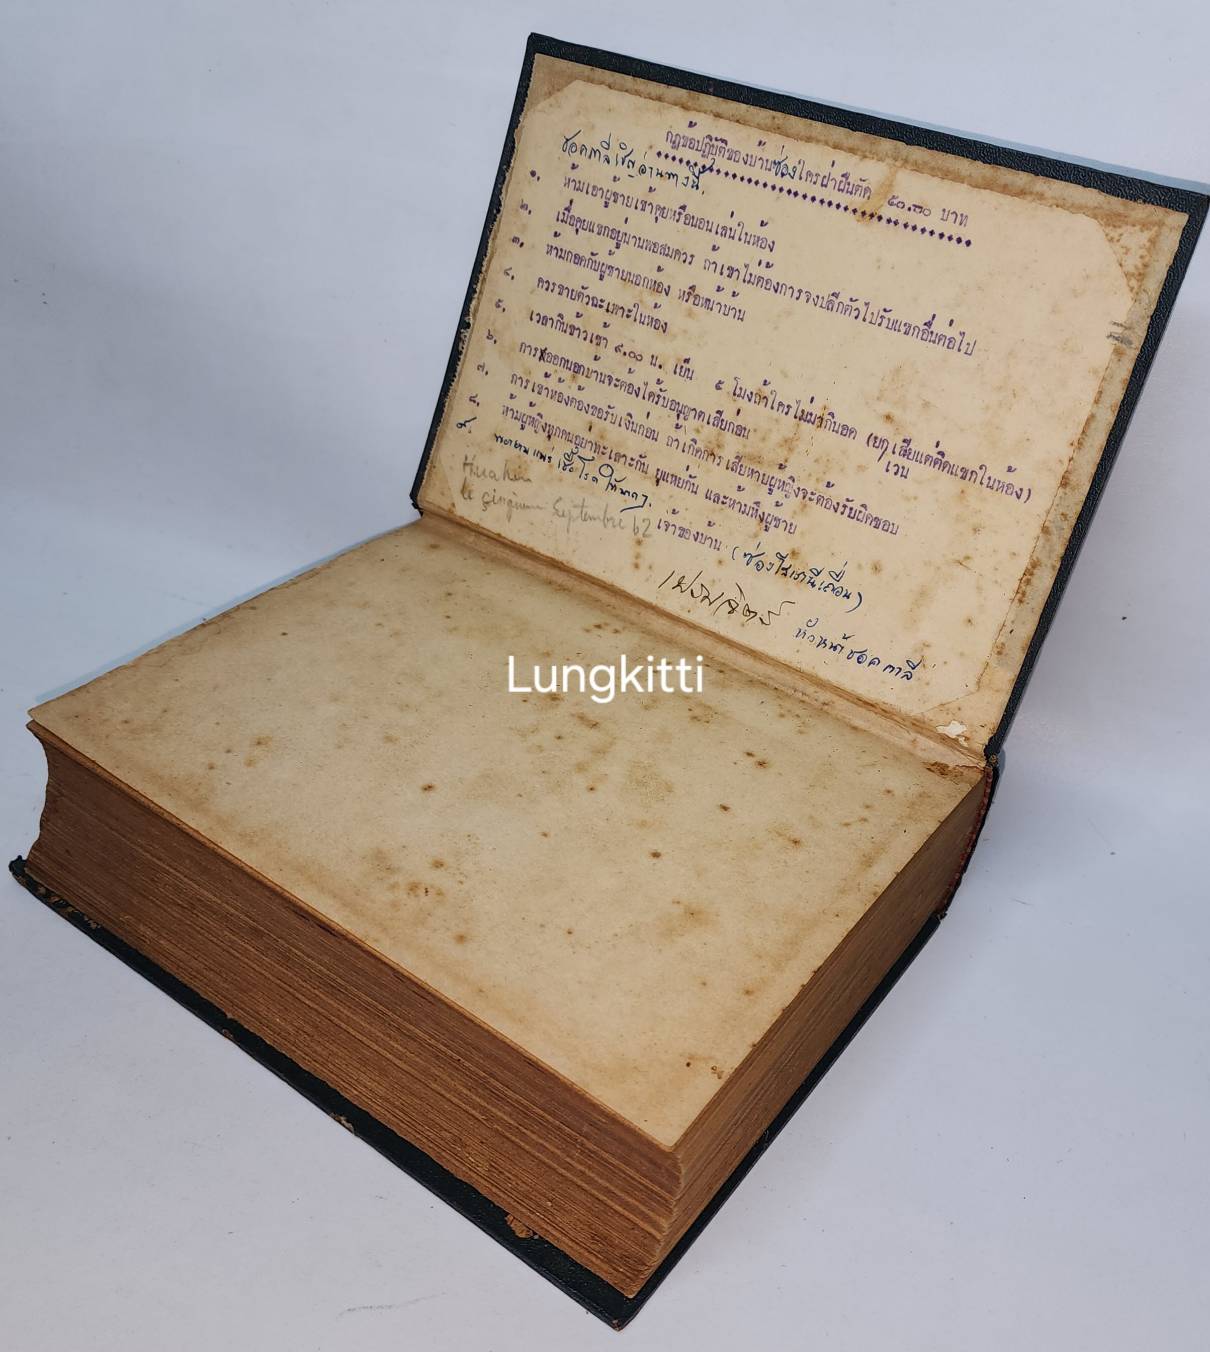 กฎข้อปฏิบัติของบ้านซ่องใครฝ่าฝืนตัด ๕๐.๐๐ บาท
ขอคกาลีเชิญอ่านทางนี้.
๑. ห้ามเอาผู้ชายเข้าคุยหรือนอนเล่นในห้อง
๒. เมื่อคุยแขกอยู่นานพอสมควร ถ้าเขาไม่ต้องการจงปลีกตัวไปรับแขกอื่นต่อไป
๓. ห้ามกอดกับผู้ชายนอกห้อง หรือหน้าบ้าน
๔. ควรขายตัวฉะเพาะในห้อง
๕. เวลากินข้าวเช้า ๙.๐๐ น. เย็น ๕ โมงถ้าใครไม่มากินอด (ยกเสียแต่ติดแขกในห้อง)
เวน
๖. การออกนอกบ้านจะต้องได้รับอนุญาตเสียก่อน
๗. การเข้าห้องต้องขอรับเงินก่อน ถ้าเกิดการเสียหายผู้หญิงจะต้องรับผิดชอบ
๘. ห้ามผู้หญิงทุกคนอย่าทะเลาะกัน ยุแหย่กัน และห้ามหึงผู้ชาย
๙. พยายามแพร่เชื้อโรคให้มากๆ.
Huahin
le cinquième Septembre 62
เจ้าของบ้าน (ซ่องโสเภนีเถื่อน)
หัวหน้าขอคกาลี
Lungkitti